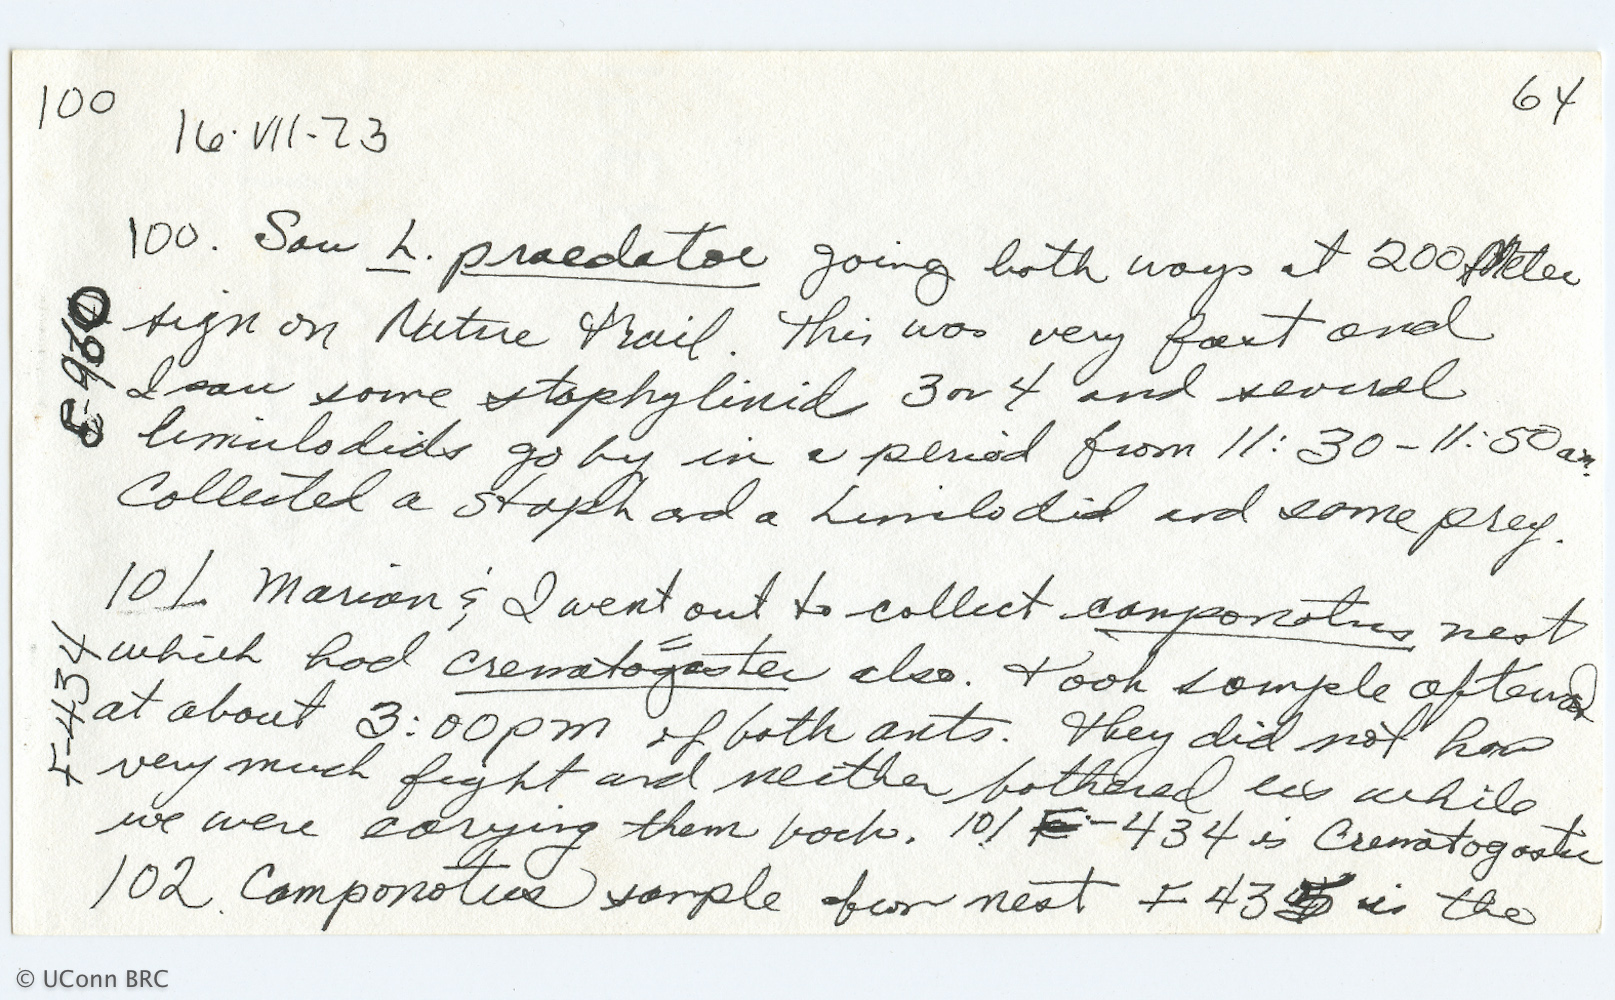 100
64
16·VII-73
100. Saw L. praedator going both ways at 200 Meter
sign on Nature trail. This was very fast and
I saw some staphylinid 3 or 4 and several
limulodids go by in a period from 11:30-11:50 am.
Collected a staph and a Limulodid and some prey.
E-960
101. Marian & I went out to collect camponotus nest
which had crematogaster also. Took sample afterward
at about 3:00pm of both ants. They did not have
very much fight and neither bothered us while
we were carying them back. 101 F-434 is Crematogaster
F-434
102. Camponotus sample from nest F 435 is the
© UConn BRC